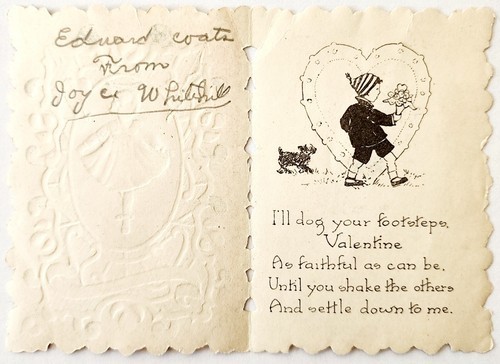 Edward Coats
From
Joyce Whitehill
I'll dog your footsteps,
Valentine
As faithful as can be,
Until you shake the others
And settle down to me.